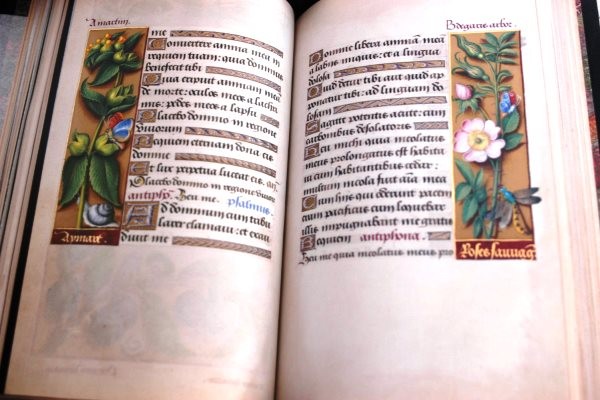 Amartin.
me
Convertere anima mea in
requiem tuam: quia dominus
benefecit tibi
Quia eripuit animam mean
de morte: oculos meos a lachri
mis: pedes meos a lapsu
Placebo domino in regione
vivorum
Requiem eternam dona eis
domine
Et lux perpetua luceat eis. an.
Placebo domino in regione vivorum
antipho. Heu me. psalmus.
Ad dominum cum tribu
larer clamavi: et exau
divit me
Aymart
Bedegaris arbor.
Domine libera animam meam
a labiis iniquis: et a lingua
dolosa
Quid detur tibi aut quid ap
ponatur tibi: ad linguam do
losam
Sagitte potentis acute: cum
carbonibus desolatoriis
Heu michi quia incolatus
meus prolongatus est habita
vi cum habitantibus cedar:
multum incola fuit anima mea
Cum hiis qui oderunt pacem
eram pacificus cum loquebar
illis impugnabant me gratis
Requiem antiphona.
Heu me quia incolatus meus pro
Roses sauvag